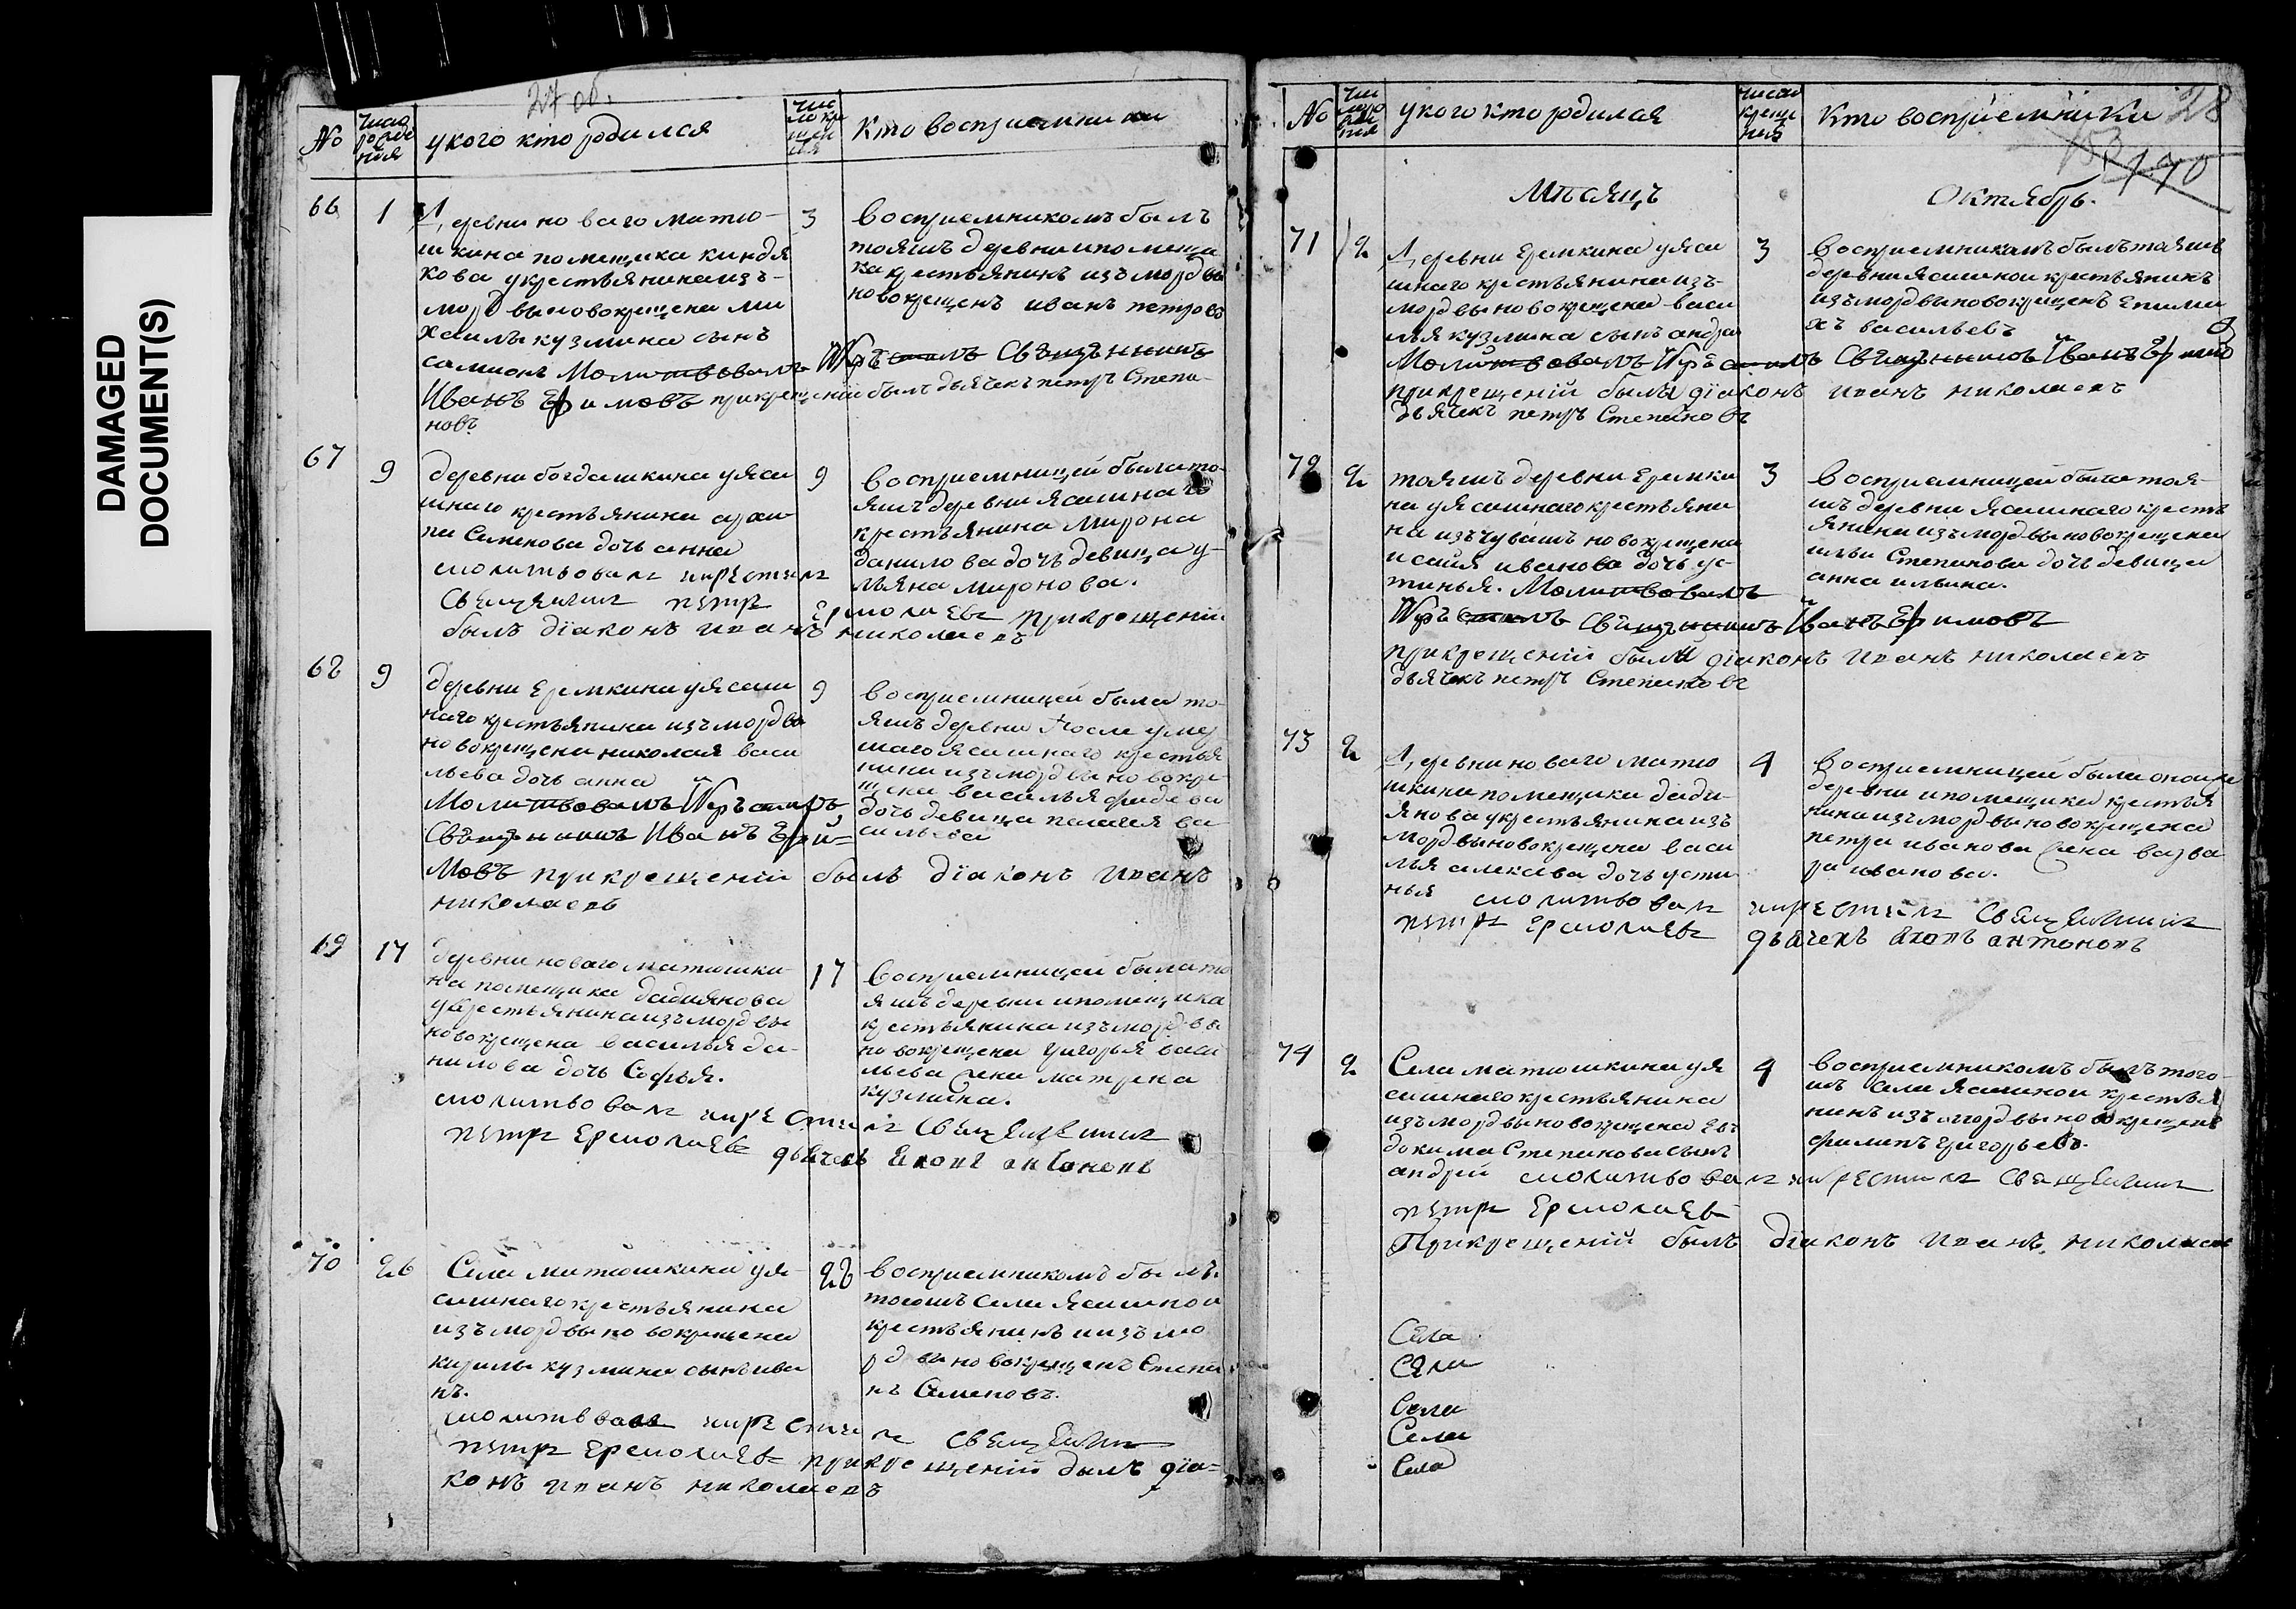 DAMAGED
DOCUMENT(S)
27 об.
No
число рожде ния
укого кто родился
число кре щен ия
Кто восприемники
66
1
Деревни новаго матю-
шкина помещика киндя
кова укрестьянина изъ-
мордвы новокрещена ми
хаилы кузмина сынъ
самиолъ Молитвовалъ И крестилъ Священникъ
Иванъ Ефимовъ прикрещеніи былъ дьячекъ петръ Степа-
новъ
3
восприемникомъ былъ
тояжъ деревни ипомещи
ка крестьянинъ изъ мордвы
новокрещенъ иванъ петровъ
67
9
деревни богдашкина уяса
шнаго крестьянина
Семенова дочь анна
молитвовалъ икрестилъ
Священникъ петръ Ермолаевъ прикрещеніи
былъ діаконъ иванъ николаевъ
9
восприемницей была то-
яжъ деревни ясашнаго
крестьянина Мирона
данилова дочь девица у-
льяна миронова.
68
9
деревни Еремкина уясаш
наго крестьянина изъ мордвы
новокрещена николая васи
льева дочь анна
Молитвовалъ И крестилъ
Священникъ Иванъ Ефи-
мовъ прикрещеніи былъ діаконъ иванъ
николаевъ
9
восприемницей была то-
яжъ деревни После умер
шаго ясашнаго крестья
нина изъ мордвы новокре-
щена василья
дочь девица пелагея ва
сильева
69
17
деревни новаго матюшки-
на помещика дадиянова
укрестьянина изъ мордвы
новокрещена василья да-
нилова дочь Софья.
молитвовалъ икрестилъ Священникъ
петръ Ермолаевъ дьячекъ яковъ антоновъ
17
восприемницей была то
яжъ деревни ипомещика
крестьянина изъ мордвы
новокрещена григорья васи
льева жена матрена
кузмина.
70
26
Села матюшкина уя-
сашнаго крестьянина
изъ мордвы новокрещена
кирилы кузмина сынъ ива
нъ.
молитвовалъ икрестилъ Священникъ
петръ Ермолаевъ прикрещеніи былъ діа-
конъ иванъ николаевъ
26
восприемникомъ былъ
тогожъ села ясашнои
крестьянинъ изъ мо
рдвы новокрещенъ Степа
нъ Семеновъ.
No
чис ло ро жде ния
укого кто родился
число креще ния
Кто восприемники
28
170
Месяцъ
Октябрь.
71
2
Деревни Еремкина уяса
шнаго крестьянина изъ-
мордвы новокрещена васи
лья кузмина сынъ андре
Молитвовалъ И крестилъ Священникъ Иванъ Ефимо
прикрещеніи были діаконъ иванъ николаевъ
дьячекъ петръ Степановъ
3
восприемникомъ былъ тояжъ
деревни ясашнои крестьянинъ
изъ мордвы новокрещенъ Епима
хъ васильевъ
72
2
тояжъ деревни Еремки
на уясашнаго крестьяни
на изъ чувашъ новокрещена
исаия иванова дочь ус-
тинья. Молитвовалъ
И крестилъ Священникъ Иванъ Ефимовъ
прикрещеніи были діаконъ иванъ николаевъ
дьячекъ петръ Степановъ
3
восприемницей была тоя-
жъ деревни ясашнаго кресть
янина изъ мордвы новокрещена
ильи Степанова дочь девица
анна ильина.
73
2
Деревни новаго матю
шкина помещика дади-
янова укрестьянина изъ
мордвы новокрещена васи
лья алексева дочь усти
нья молитвовалъ икрестилъ Священникъ
петръ Ермолаевъ дьячекъ яковъ антоновъ
4
восприемницей была онои
деревни ипомещика крестья
нина изъ мордвы новокрещена
петра иванова жена варва
ра иванова.
74
2
Села матюшкина уя
сашнаго крестьянина
изъ мордвы новокрещена Ев
докима Степанова сынъ
андрей молитвовалъ икрестилъ Священникъ
петръ Ермолаевъ
Прикрещеніи былъ діаконъ иванъ николаевъ
4
восприемникомъ былъ того-
жъ села ясашнои крестья
нинъ изъ мордвы новокрещенъ
филипъ григорьевъ.
Села
Села
Села
Села
Села